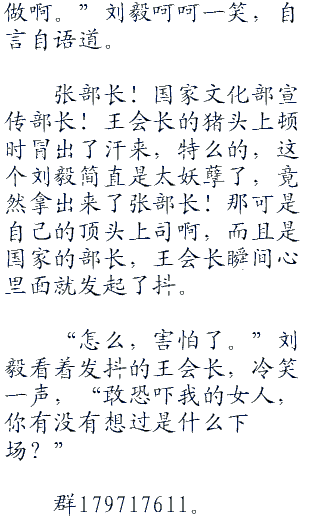 做啊。” 刘毅呵呵一笑，自
言自语道。
张部长！国家文化部宣
传部长！王会长的猪头上顿
时冒出了汗来，特么的，这
个刘毅简直是太妖孽了，竟
然拿出来了张部长！那可是
自己的顶头上司啊，而且是
国家的部长，王会长瞬间心
里面就发起了抖。
“怎么，害怕了。” 刘
毅看着发抖的王会长，冷笑
一声，“敢恐吓我的女人，
你有没有想过是什么下
场？”
群179717611。